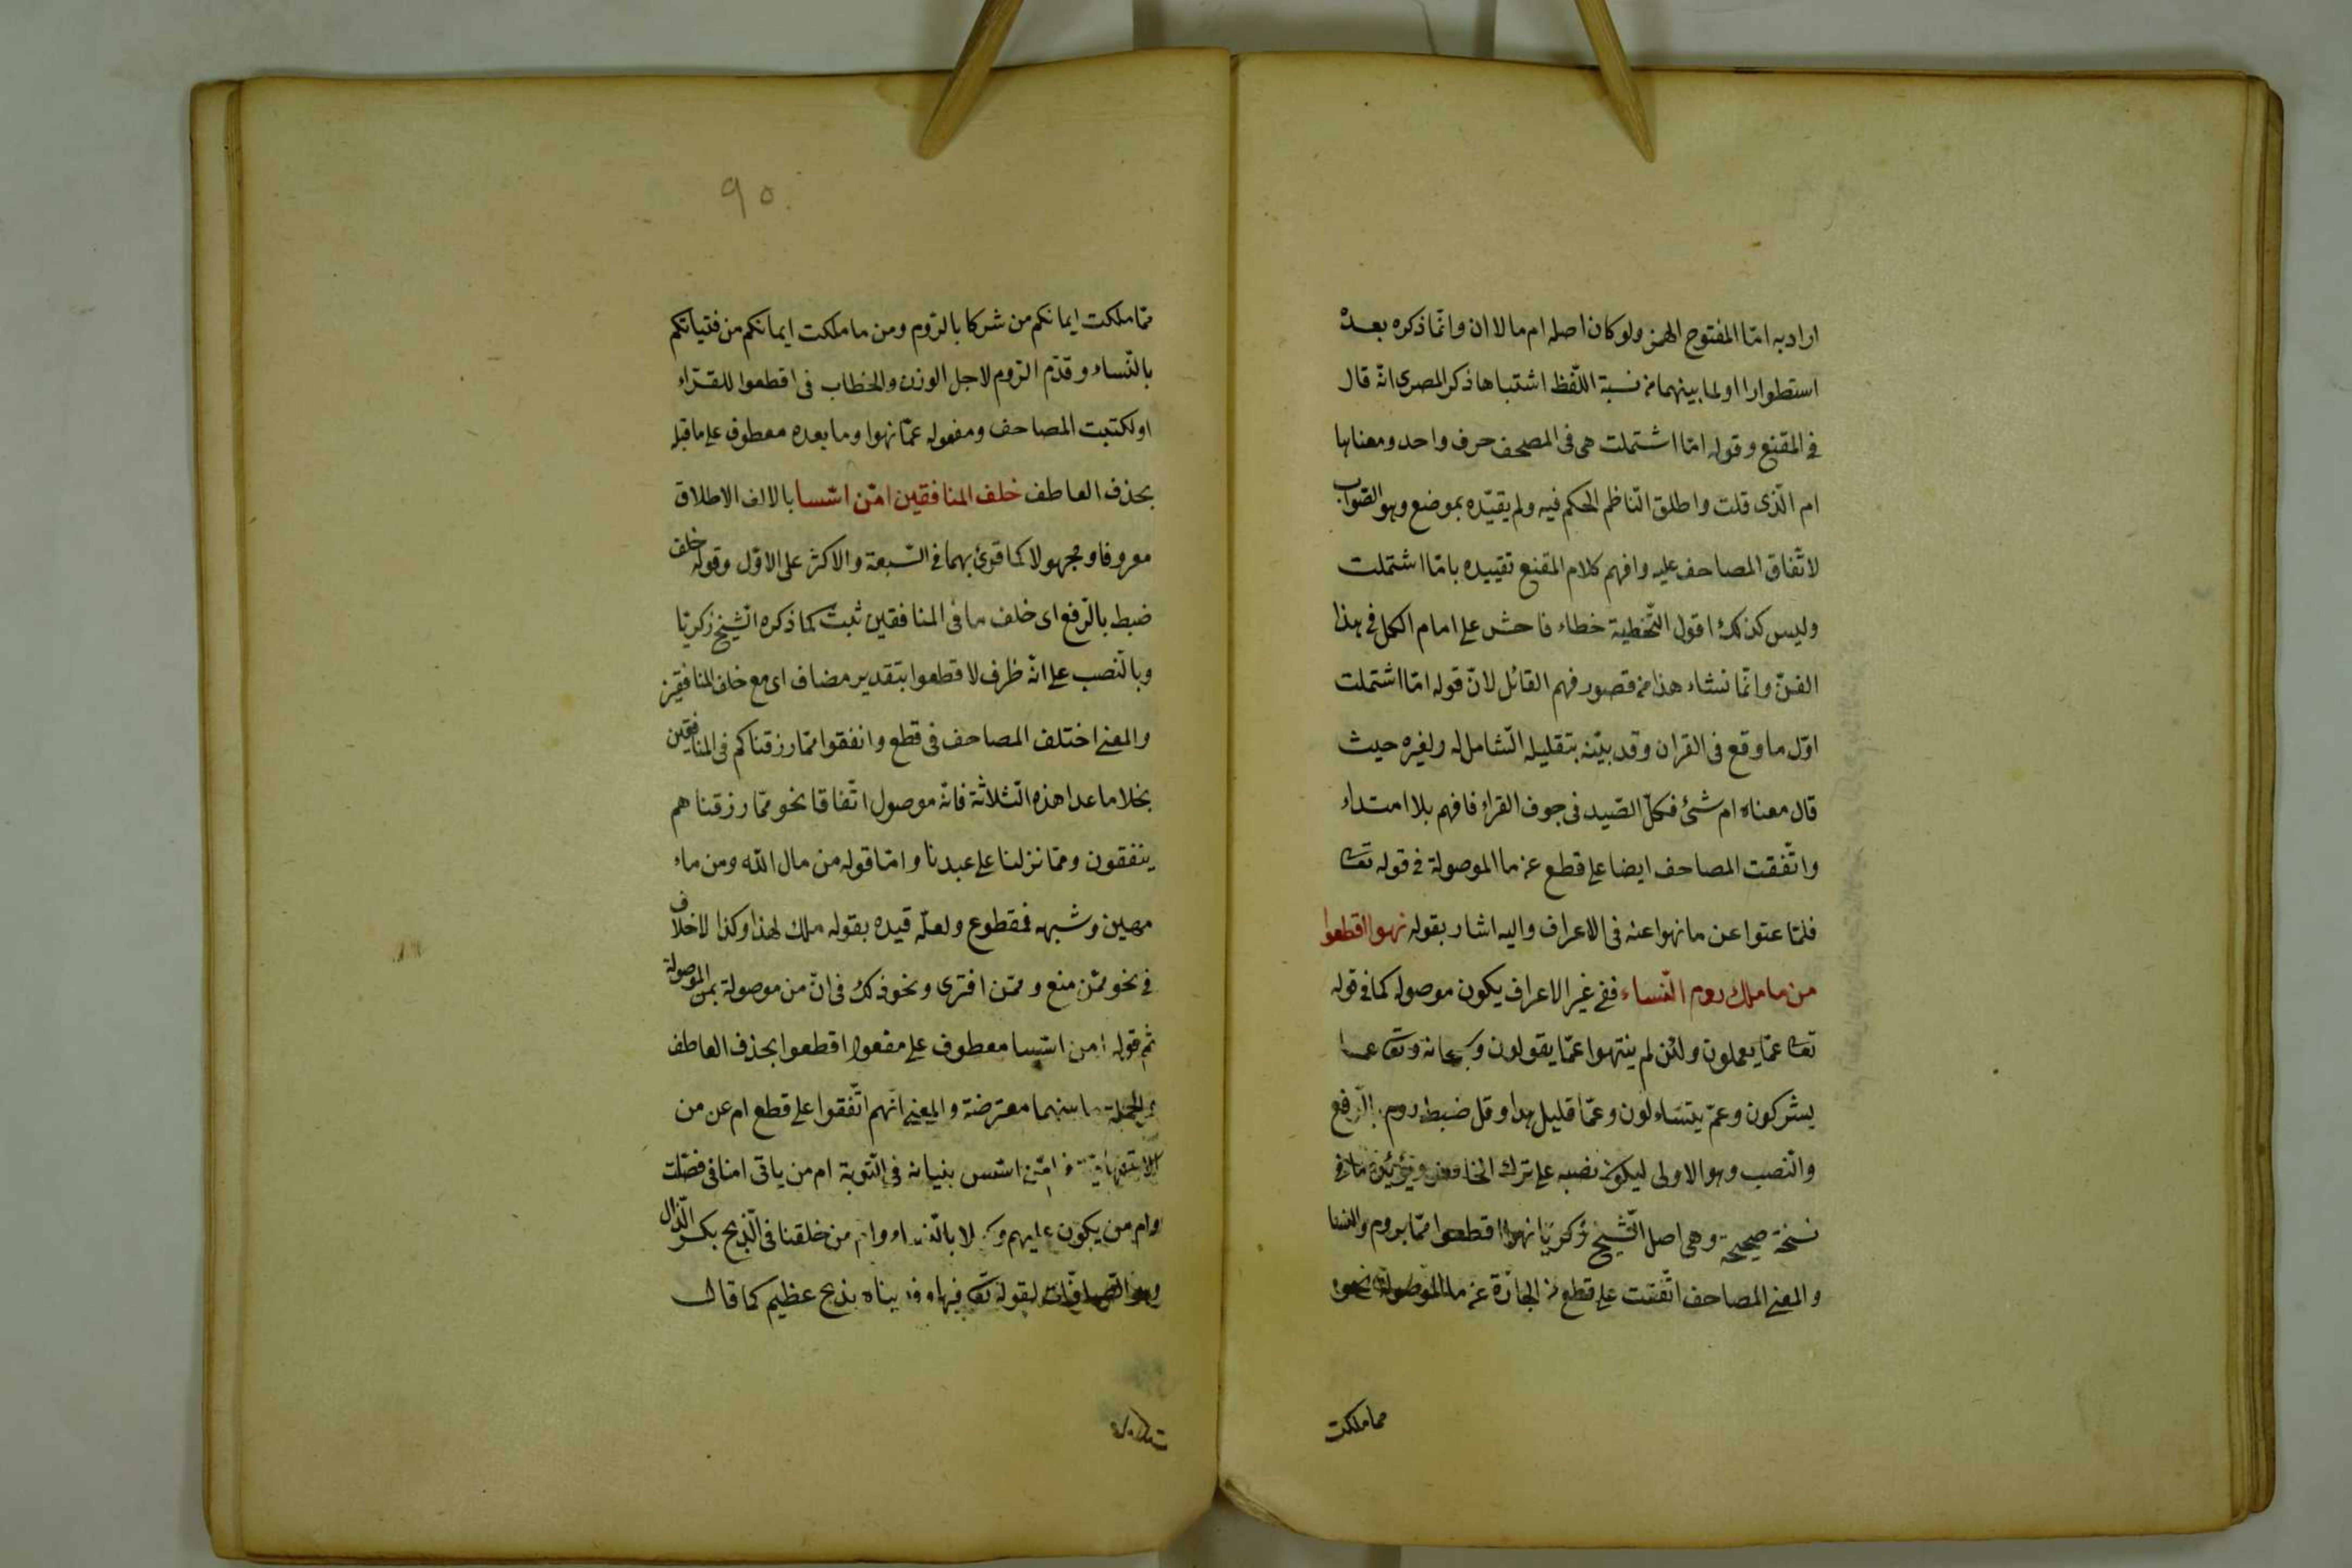 اراد به امّا المفتوح الهمز ولو كان اصله ام ما لا ان وانّما ذكره بعده
استطرادا او لما بينهما من نسبة اللّفظ اشتباها ذكر المصرى انّه قال
فى المقنع وقوله امّا اشتملت هى فى المصحف حرف واحد ومعناها
ام الّذى قلت واطلق النّاظم الحكم فيه ولم يقيّده بموضع وهو الصّواب
لاتّفاق المصاحف عليه وافهم كلام المقنع تقييده بامّا اشتملت
وليس كذلك اقول التّخطية خطاء فاحش على امام الكل فى هذا
الفنّ وانّما نشاء هذا من قصور فهم القائل لانّ قوله امّا اشتملت
اوّل ما وقع فى القران وقد بيّنه بتقليله الشّامل له ولغيره حيث
قال معناه ام شئ فكلّ الصّيد فى جوف الفراء فافهم بلا امتداء
واتّفقت المصاحف ايضا على قطع عن ما الموصولة فى قوله تعالى
فلمّا عتوا عن ما نهوا عنه فى الاعراف واليه اشار بقوله نهوا اقطعوا
من ما ملك روم النّساء ففى غير الاعراف يكون موصوله كما فى قوله
تعالى عمّا يعملون ولئن لم ينتهوا عمّا يقولون و سبحانه وتعالى عما
يشركون وعمّ يتساءلون وعمّا قليل هذا وقل ضبط روم بالرّفع
والنّصب وهو الاولى ليكون نصبه على ترك الخافض ويؤيّده ما فى
نسخة صحيحة وهى اصل الشّيخ زكريّا نهوا اقطعوا ممّا بروم والنّسا
والمعنى المصاحف اتّفقت على قطع من الجارّة عن ما الموصولة نحو
مما ملكت
٩٥
ممّا ملكت ايمانكم من شركا بالرّوم ومن ما ملكت ايمانكم من فتياتكم
بالنّساء وقدّم الرّوم لاجل الوزن والخطاب فى اقطعوا للقرّاء
او لكتبت المصاحف ومفعوله عمّا نهوا وما بعده معطوف على ما قبله
بحذف العاطف خلف المنافقين امّن اسّسا بالالف الاطلاق
معروفا ومجهولا كما قرئ بهما فى السّبعة والاكثر على الاوّل وقوله خلف
ضبط بالرّفع اى خلف ما فى المنافقين ثبت كما ذكره الشّيخ زكريّا
وبالنّصب على انّه ظرف لاقطعوا بتقدير مضاف اى مع خلف المنافقين
والمعنى اختلف المصاحف فى قطع وانفقوا ممّا رزقناكم فى المنافقين
بخلا ما عدا هذه الثّلاثة فانّه موصول اتّفاقا نحو ممّا رزقناهم
ينفقون وممّا نزلنا على عبدنا وامّا قوله من مال اللّه ومن ماء
مهين وشبهه فمقطوع ولعلّه قيده بقوله ملك لهذا وكذا لا خلاف
فى نحو ممّن منع وممّن افترى ونحو ذلك فى انّ من موصولة بمن الموصولة
ثم قوله امن اسّسا معطوف على مفعول اقطعوا بحذف العاطف
والجملة ما بينهما معترضة والمعنى انّهم اتّفقوا على قطع ام عن من
الاستفهاميّة فى امّن اسّس بنيانه فى التّوبة ام من ياتى امنا فى فصّلت
وام من يكون عليهم وكيلا بالنّساء وام من خلقنا فى الذّبح بكسر الذّال
وهو الصّافّات لقوله تعالى فيها وفديناه بذبح عظيم كما قال